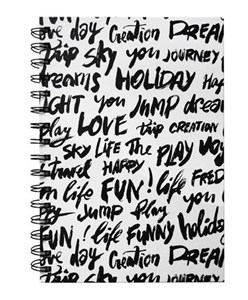 ove day CREATION DREAM
Trip SKY you JOURNEY
reams HOLIDAY Hap
IGHT you JUMP dream
play LOVE trip CREATION
SKY LIFE THE PLAY Day
travel HAPPY
life FUN! life FRED
by JUMP Play
FUN! life FUNNY holiday
ove day Creation DREAM
Trip SKY you JOURNEY